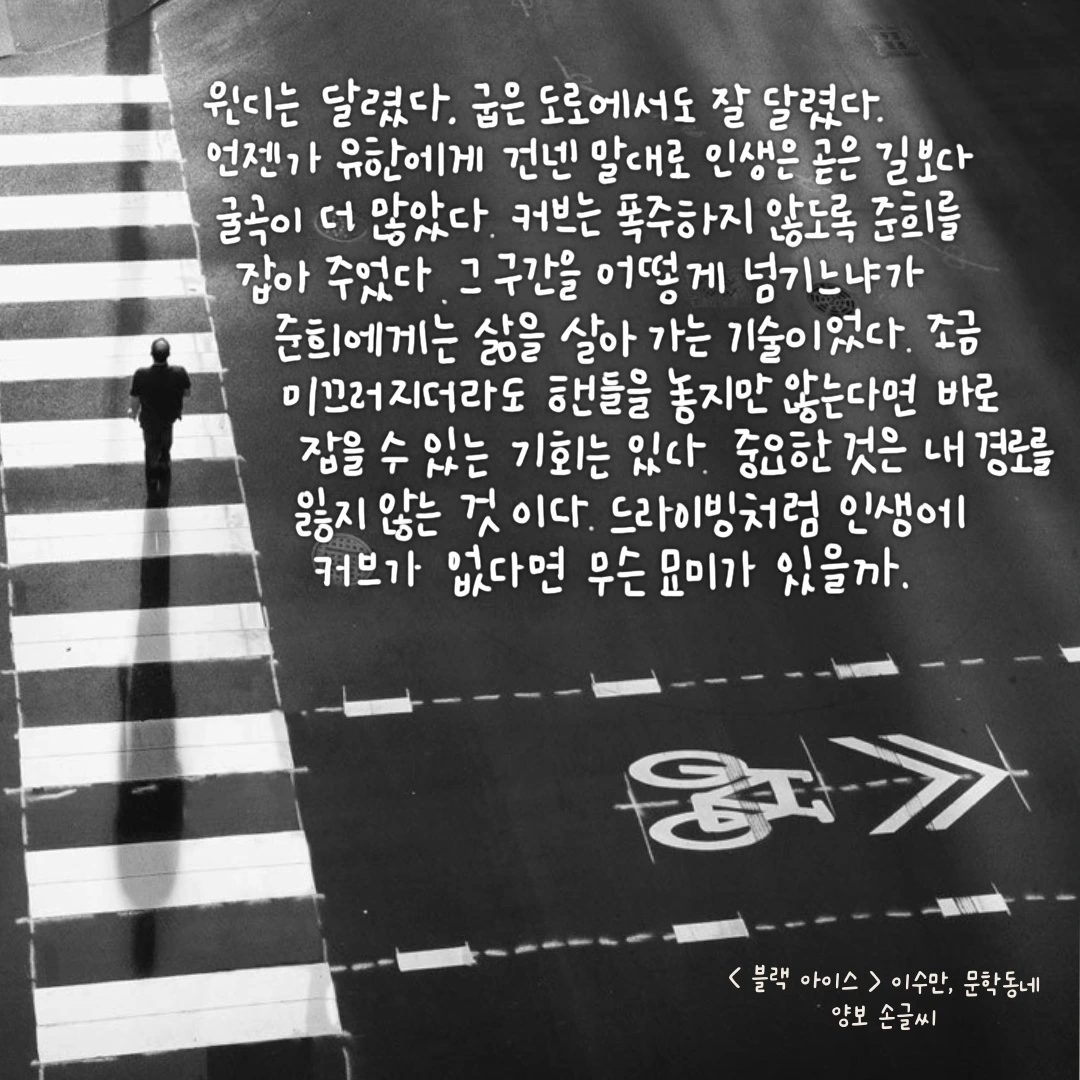 윈디는 달렸다. 굽은 도로에서도 잘 달렸다.
언젠가 유한에게 건넨 말대로 인생은 곧은 길보다
굴곡이 더 많았다. 커브는 폭주하지 않도록 준희를
잡아 주었다. 그 구간을 어떻게 넘기느냐가
준희에게는 삶을 살아 가는 기술이었다. 조금
미끄러지더라도 핸들을 놓지만 않는다면 바로
잡을 수 있는 기회는 있다. 중요한 것은 내 경로를
잃지 않는 것 이다. 드라이빙처럼 인생에
커브가 없다면 무슨 묘미가 있을까.
< 블랙 아이스 > 이수만, 문학동네
양보 손글씨